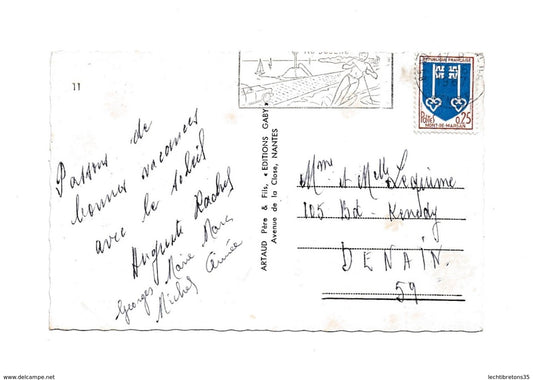 11
Passons de
bonnes vacances
avec le soleil
Auguste Rachel
Georges Marie Marc
Michel Aimée
ARTAUD Père & Fils, «EDITIONS GABY»
Avenue de la Close, NANTES
REPUBLIQUE FRANÇAISE
Postes 0,25
MONT-DE-MARSAN
Mme et Melle Lequime
105 Bd - Kenedy
DENAIN
59
www.delcampe.net
lechtibretons35